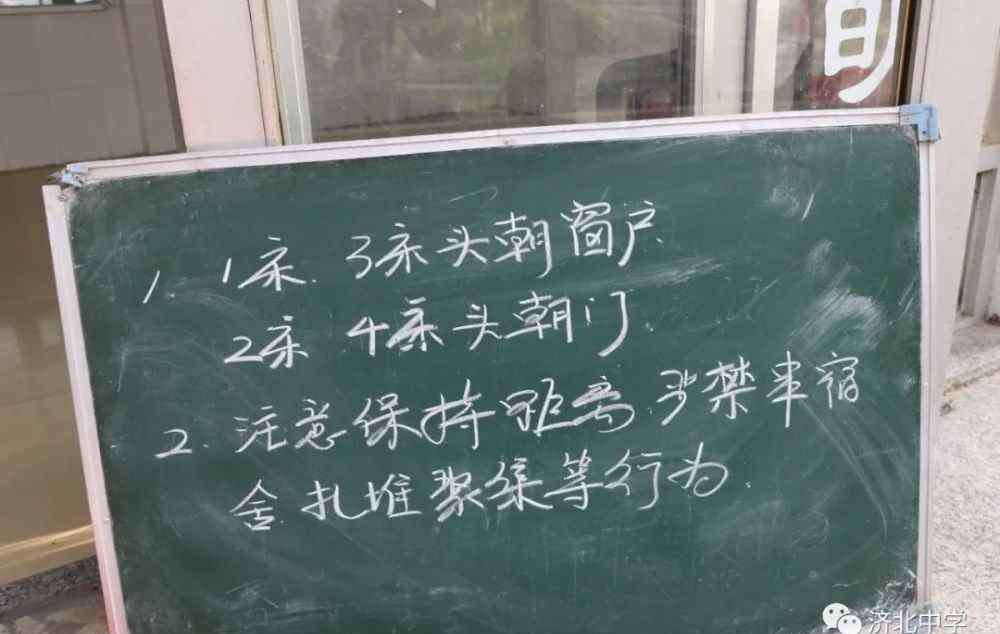 旬
1. 1床. 3床头朝窗户
2床 4床头朝门.
2. 注意保持距离.严禁串宿
舍.扎堆聚集等行为.
济北中学